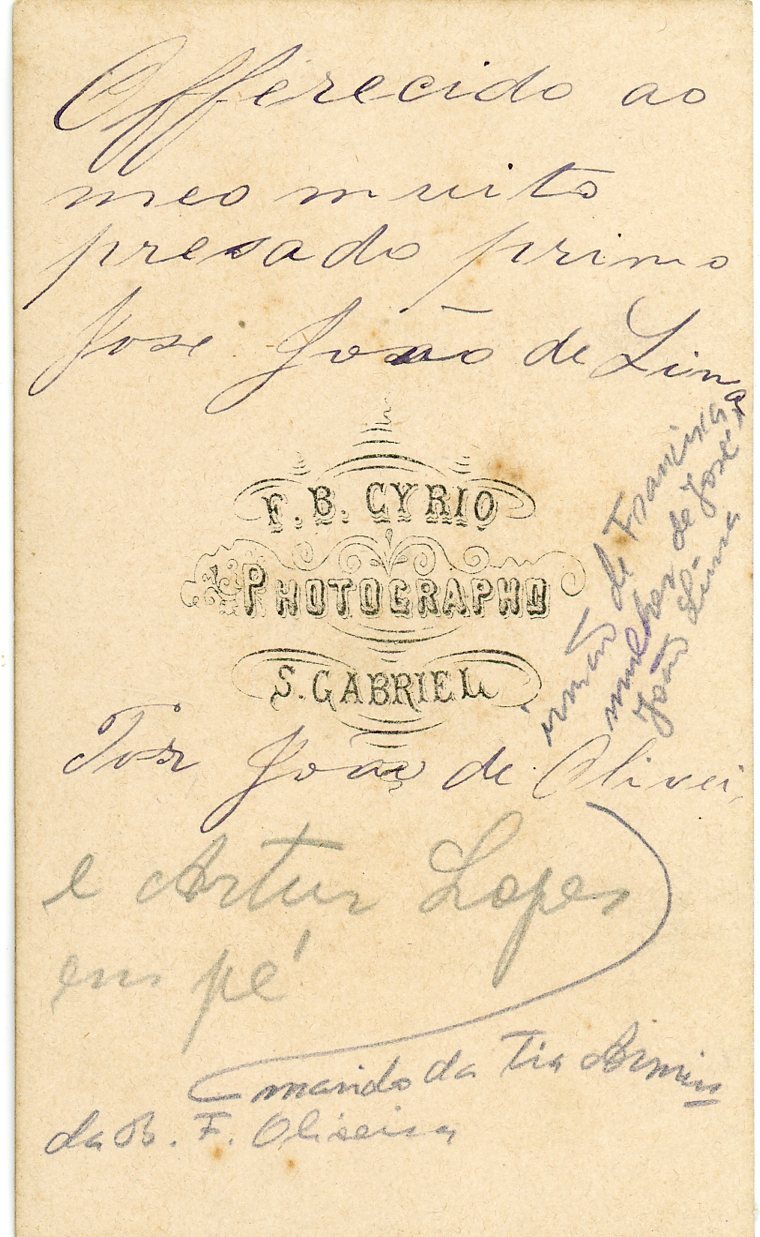 Offerecido ao
meo muito
presado primo
Jose João de Lima
F. B. CYRIO
PHOTOGRAPHO
S. GABRIEL
irmão de Francisca
mulher de José
João Lima
Por João de Olivei
e Artur Lopes
em pé
marido da Tia Armin
da B. F. Oliveira